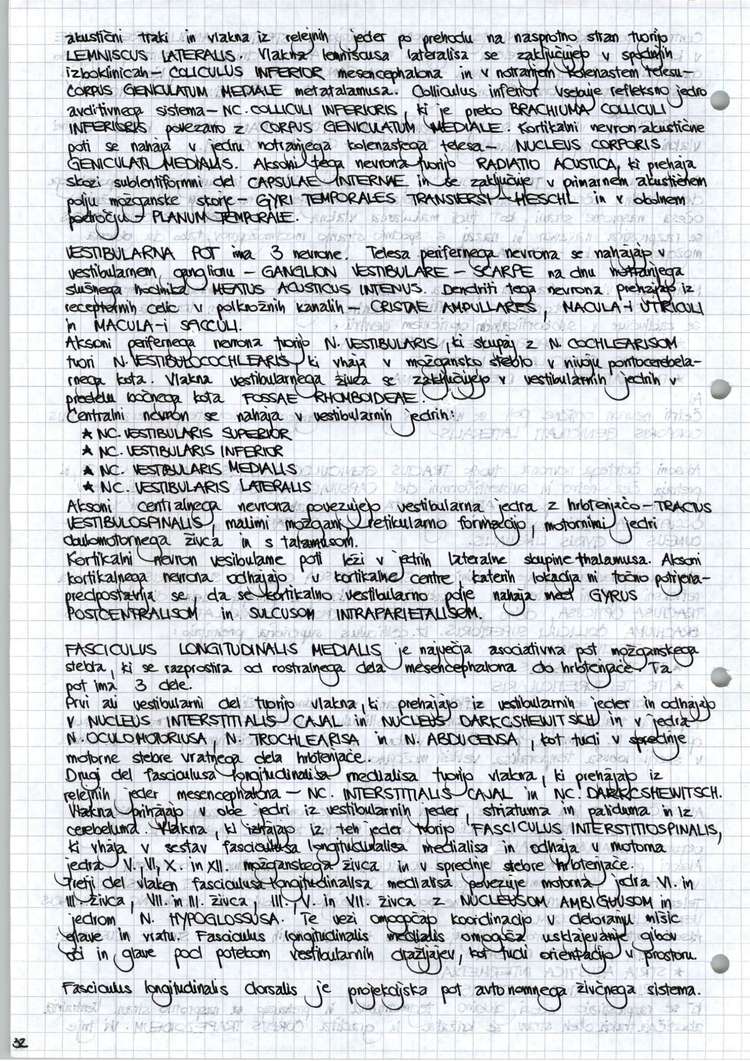 akustični traki in vlakna iz relejnih jeder po prehodu na nasprotno stran tvorijo
LEMNISCUS LATERALIS. Vlakna lemniscusa lateralisa se zaključujejo v spodnjih
izboklinicah – COLICULUS INFERIOR mesencephalona in v notranjem kolenastem telesu –
CORPUS GENICULATUM MEDIALE metatalamusa. Colliculus inferior vsebuje refleksno jedro
avditivnega sistema – NC. COLLICULI INFERIORIS, ki je preko BRACHIUMA COLLICULI
INFERIORIS povezano z CORPUS GENICULATUM MEDIALE. Kortikalni nevron akustične
poti se nahaja v jedru notranjega kolenastega telesa – NUCLEUS CORPORIS
GENICULATI MEDIALIS. Aksoni tega nevrona tvorijo RADIATIO ACUSTICA, ki prehaja
skozi sublentiformni del CAPSULAE INTERNAE in se zaključuje v primarnem akustičnem
polju možganske skorje – GYRI TEMPORALES TRANSVERSI – HESCHL in v obolnem
področju – PLANUM TEMPORALE.
VESTIBULARNA POT ima 3 nevrone. Telesa perifernega nevrona se nahajajo v
vestibularnem gangliou – GANGLION VESTIBULARE – SCARPE na dnu notranjega
slušnega hodnika – MEATUS ACUSTICUS INTENUS. Dendriti tega nevrona prehajajo iz
receptornih celic v polkrožnih kanalih – CRISTAE AMPULLARES, MACULA-i UTRICULI
in MACULA-i SACCULI.
Aksoni perifernega nevrona tvorijo N. VESTIBULARIS, ki skupaj z N. COCHLEARISOM
tvori N. VESTIBULOCOCHLEARIS, ki vhaja v možgansko steblo v nivoju pontocerebela-
rnega kota. Vlakna vestibularnega živca se zaključujejo v vestibularnih jedrih v
predelu bočnega kota FOSSAE RHOMBOIDEAE.
Centralni nevron se nahaja v vestibularnih jedrih:
★ NC. VESTIBULARIS SUPERIOR
★ NC. VESTIBULARIS INFERIOR
★ NC. VESTIBULARIS MEDIALIS
★ NC. VESTIBULARIS LATERALIS
Aksoni centralnega nevrona povezujejo vestibularna jedra z hrbtenjačo – TRACTUS
VESTIBULOSPINALIS, malimi možgani, retikularno formacijo, motornimi jedri
okulomotornega živca in s talamusom.
Kortikalni nevron vesibularne poti leži v jedrih lateralne skupine thalamusa. Aksoni
kortikalnega nevrona odhajajo v kortikalne centre, katerih lokacija ni točno potrjena –
predpostavlja se, da se kortikalno vestibularno polje nahaja med GYRUS
POSTCENTRALISOM in SULCUSOM INTRAPARIETALISOM.
FASCICULUS LONGITUDINALIS MEDIALIS je največja asociativna pot možganskega
stebla, ki se razprostira od rostralnega dela mesencephalona do hrbtenjače. Ta
pot ima 3 dele.
Prvi ali vestibularni del tvorijo vlakna, ki prehajajo iz vestibularnih jeder in odhajajo
v NUCLEUS INTERSTITIALIS CAJAL in NUCLEUS DARKCSHEWITSCH in v jedra
N. OCULOMOTORIUSA, N. TROCHLEARISA in N. ABDUCENSA, kot tudi v sprednje
motorne stebre vratnega dela hrbtenjače.
Drugi del fasciculusa longitudinalisa medialisa tvorijo vlakna, ki prehajajo iz
relejnih jeder mesencephalona – NC. INTERSTITIALIS CAJAL in NC. DARKCSHEWITSCH.
Vlakna prihajajo v obe jedri iz vestibularnih jeder, striatuma in paliduma in iz
cerebeluma. Vlakna, ki izhajajo iz teh jeder tvorijo FASCICULUS INTERSTITIOSPINALIS,
ki vhaja v sestav fasciculusa longitudinalisa medialisa in odhaja v motorna
jedra V., VI, X. in XII. možganskega živca in v sprednje stebre hrbtenjače.
Tretji del vlaken fasciculusa longitudinalisa medialisa povezuje motorna jedra VI. in
III. živca, VII. in III. živca, III., V. in VII. živca z NUCLEUSOM AMBIGUUSOM in
jedrom N. HYPOGLOSSUSA. Te vezi omogočajo koordinacijo v delovanju mišic
glave in vratu. Fasciculus longitudinalis medialis omogoča usklajevanje gibov
oči in glave pod potekom vestibularnih dražljajev, kot tudi orientacijo v prostoru.
Fasciculus longitudinalis dorsalis je projekcijska pot avtonomnega živčnega sistema.
32